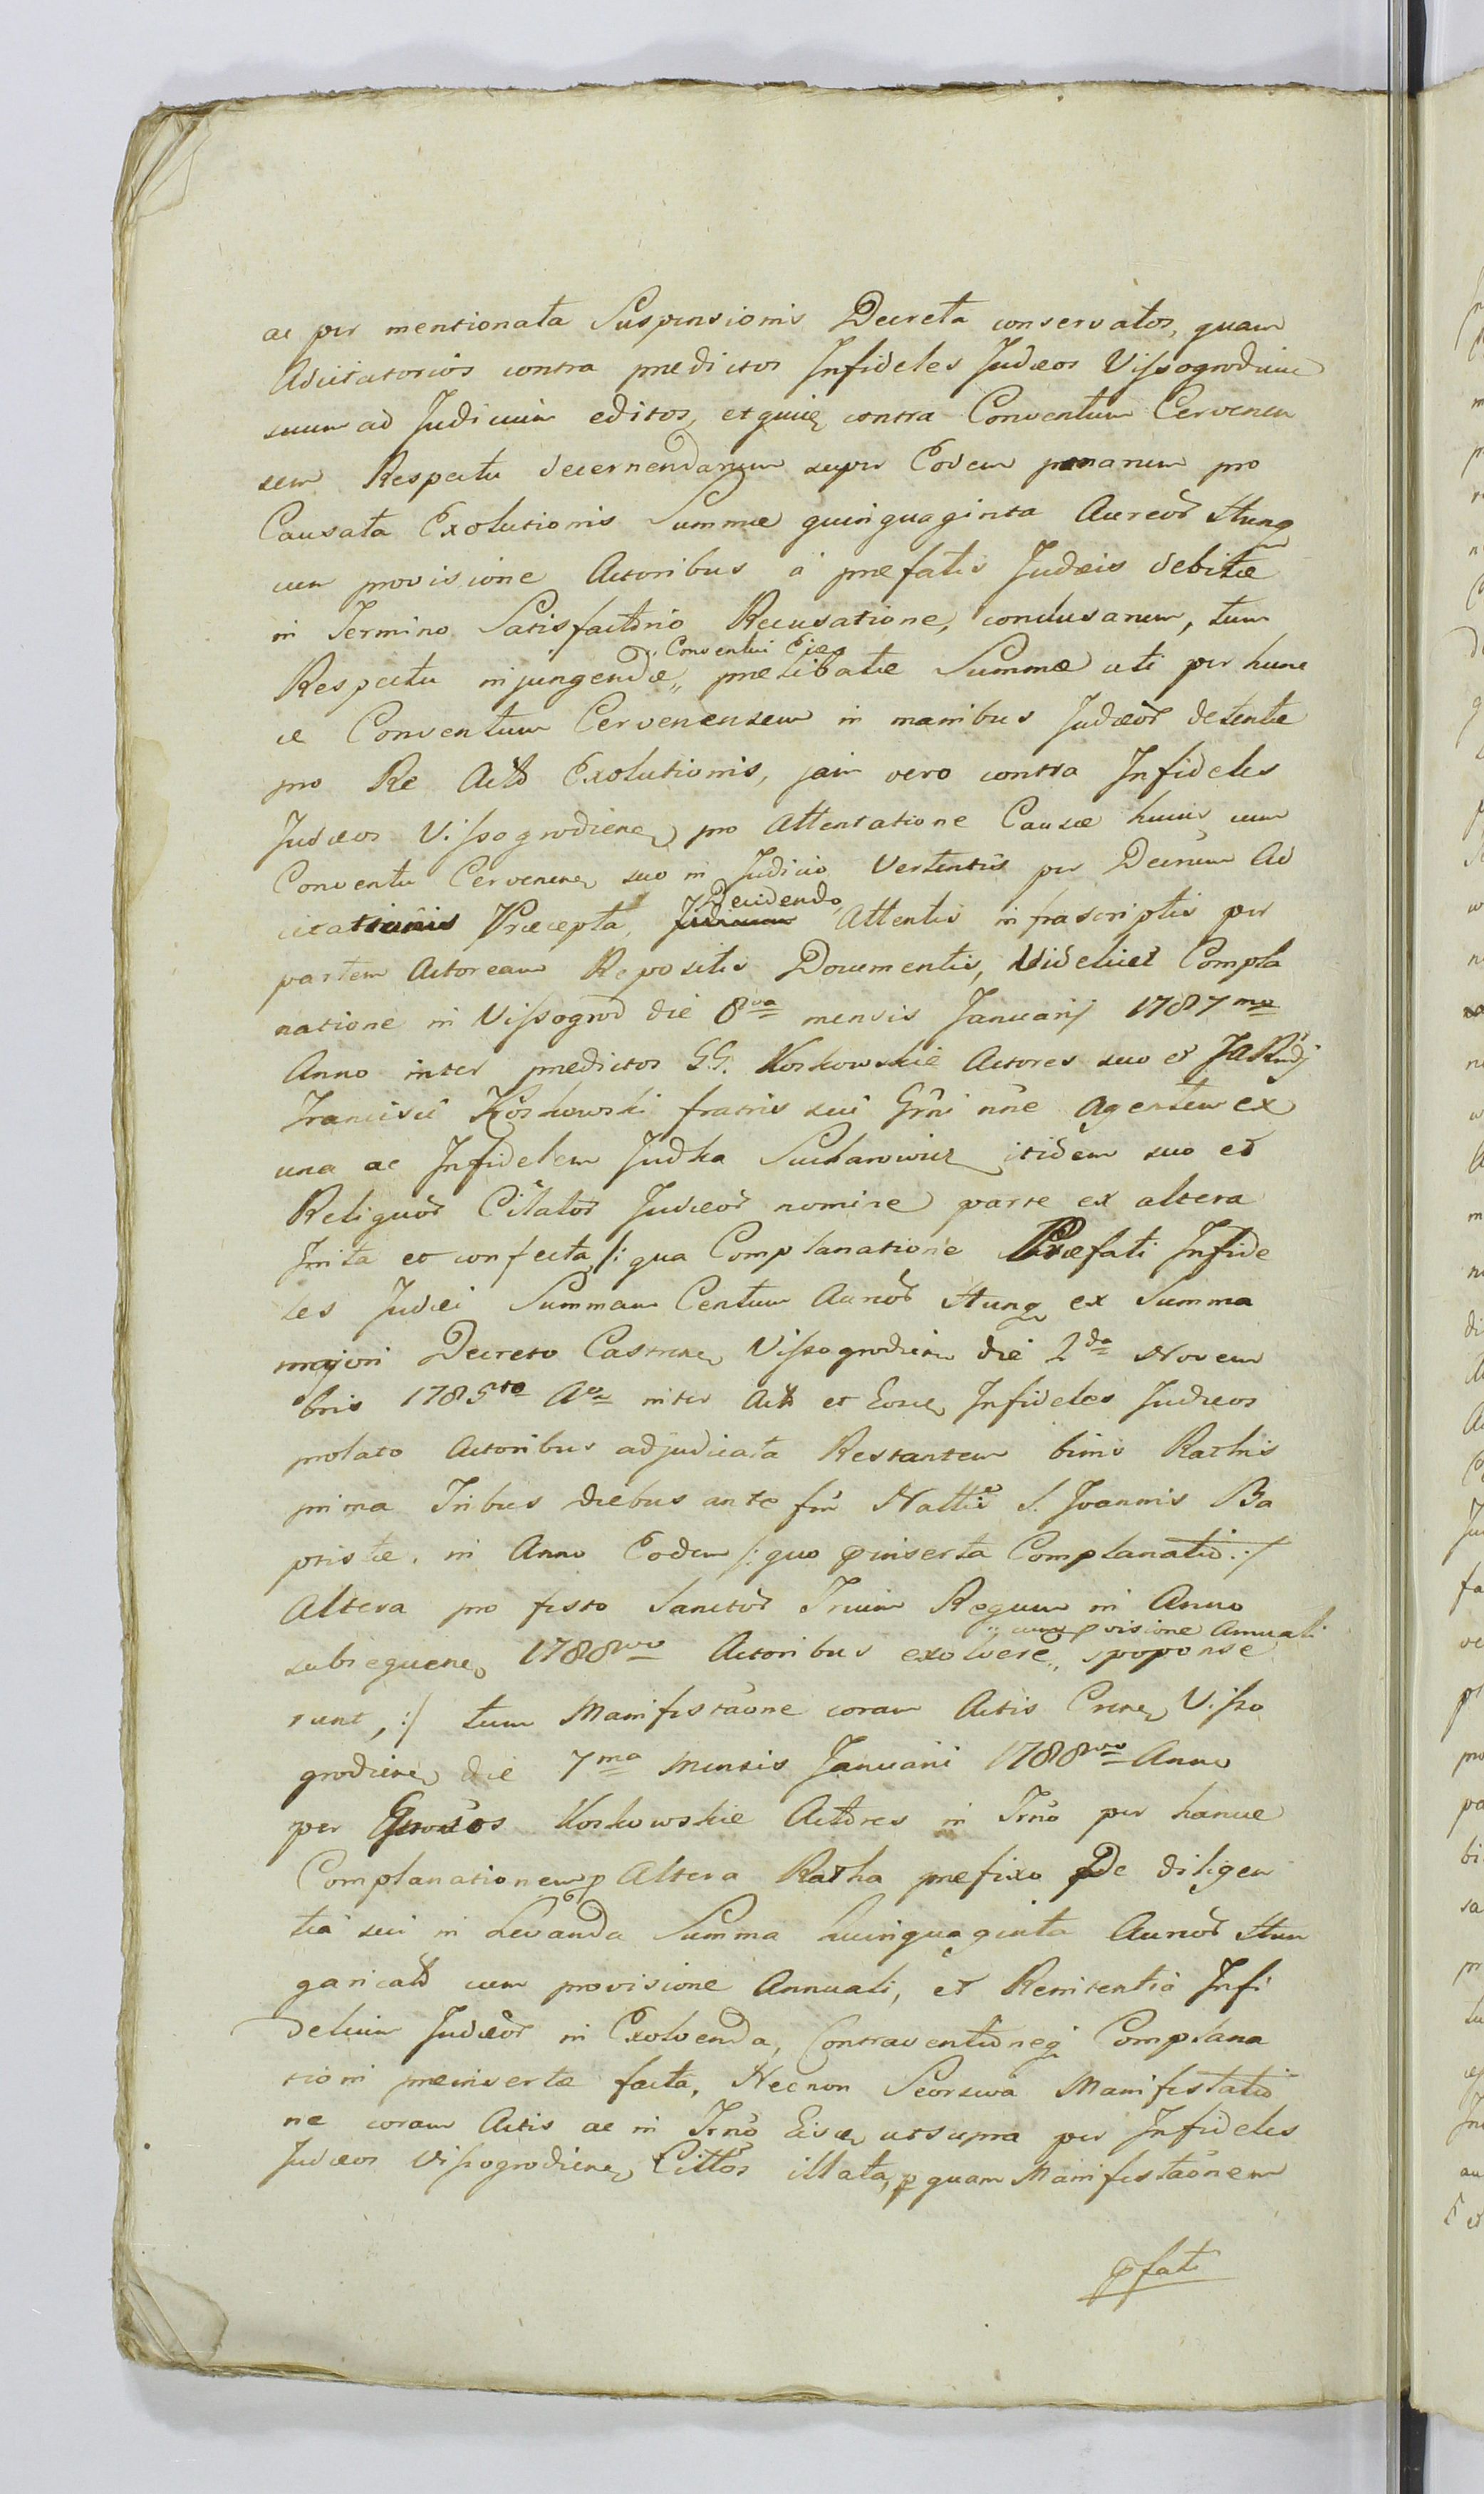 ac per mentionata Suspensionis Decreta conservatos, quam
Adcitatorios contra predictos Infideles Judæos Vissogrodien
suum ad Judicium editos, et quidem contra Conventum Cervenen
sem Respectu decernendarum super Eodem pœnarum pro
Causata Exolutionis Summæ quinquaginta Aureor Hung
cum provisione Actoribus à præfatis Judæis debitæ
in Termino Satisfactorio Recusatione, conclusarum, tum
Respectu injungendæ „ Conventui Eidem „ prælibatæ Summæ uti per hunc
ce Conventum Cervenensem in manibus Judæor detentæ
pro Re Actor Exolutionis, jam vero contra Infideles
Judæos Vissogrodienes pro Attentatione Causæ hujus cum
Conventu Cervenens suo in Judicio Vertentis per Decretum Ad
citationis Præcepta, Decidendo Attentis infrascriptis per
partem Actoream Repositis Documentis, Videlicet Compla
natione in Vissogrod die 8va mensis Januarij 1787mo
Anno inter predictos G.G. Koskowskie Actores suo et
Francisci Koskowski fratris sui Grni nne Agentem ex
una ac Infidelem Judka Suchanowicz itidem suo et
Reliquor Citator Judæor nomine parte ex altera
Inita et confecta /: qua Complanatione Præfati Infide
les Judæi Summam Centum Aureor Hung ex Summa
majori Decreto Castren Vissogrodien die 2da Novem
bris 1785to Ao inter Act et Eosdem Infideles Judæos
prolato Actoribus adjudicata Restantem binis Rathis
prima Tribus diebus ante fm Nattis S. Joannis Ba
ptistæ, in Anno Eodem /: quo pinserta Complanatio :/
Altera pro festo Sanctor Trium Regum in Anno
subsequen 1788vo Actoribus exolvere „ cum pvisione Annuali „ spoponde
runt, :/ tum Manifestaone coram Actis Cren Visso
grodien die 7ma Mensis Januarii 1788vo Anno
per Grosos Koskowskie Actores in Trno per hancce
Complanationem p Altera Ratha prefixo De diligen
tia sui in Levanda Summa quinquaginta Aureor Hun
garicalr cum provisione Annuali, et Renitentia Infi
delium Judæor in Exolvenda, Contraventioneq Complana
tioni preinsertæ facta, Necnon Seorsiva Manifestatio
ne coram Actis ac in Trno Eisdem utsupra per Infideles
Judæos Vissogrodien Cittos illata, p quam Manifestaonem
pfati